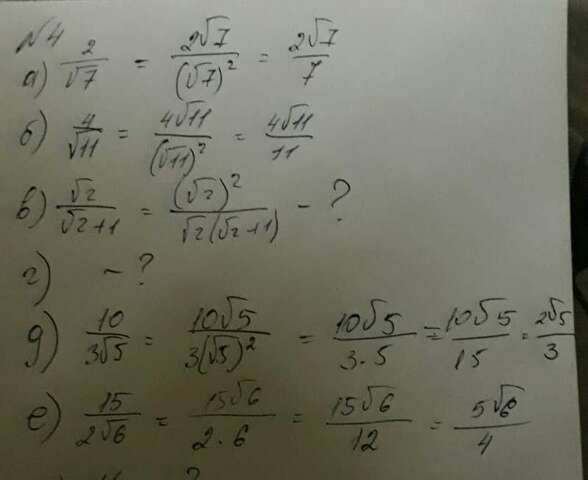 №4
а) 2/√7 = 2√7/(√7)² = 2√7/7
б) 4/√11 = 4√11/(√11)² = 4√11/11
в) √2/√2+1 = (√2)²/√2(√2+1) - ?
г) - ?
д) 10/3√5 = 10√5/3(√5)² = 10√5/3·5 = 10√5/15 = 2√5/3
е) 15/2√6 = 15√6/2·6 = 15√6/12 = 5√6/4
?